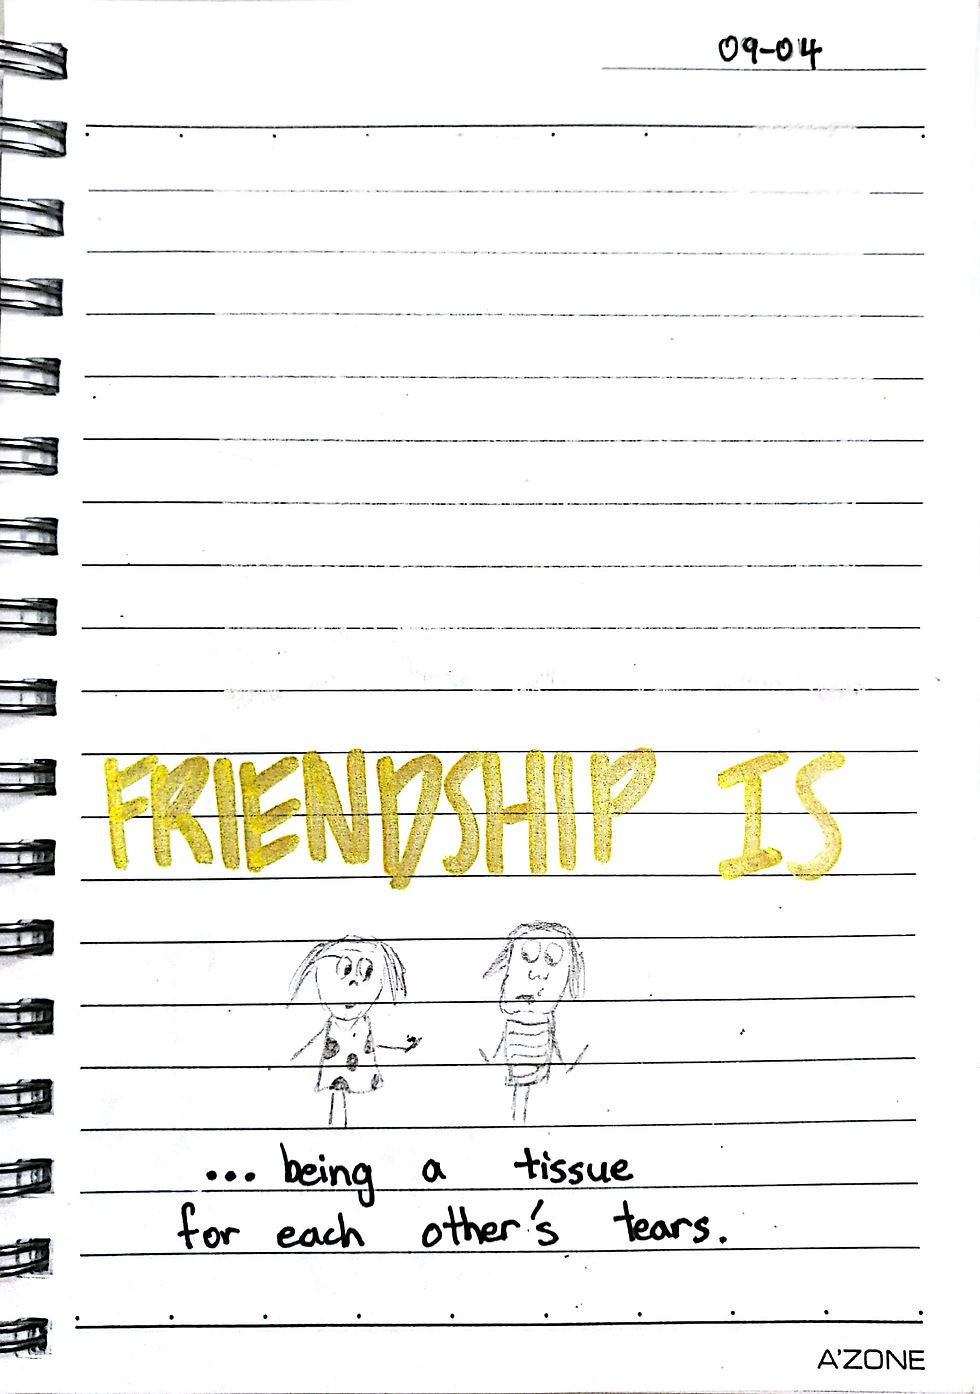 09-04
FRIENDSHIP IS
... being a tissue
for each other's tears.
A'ZONE